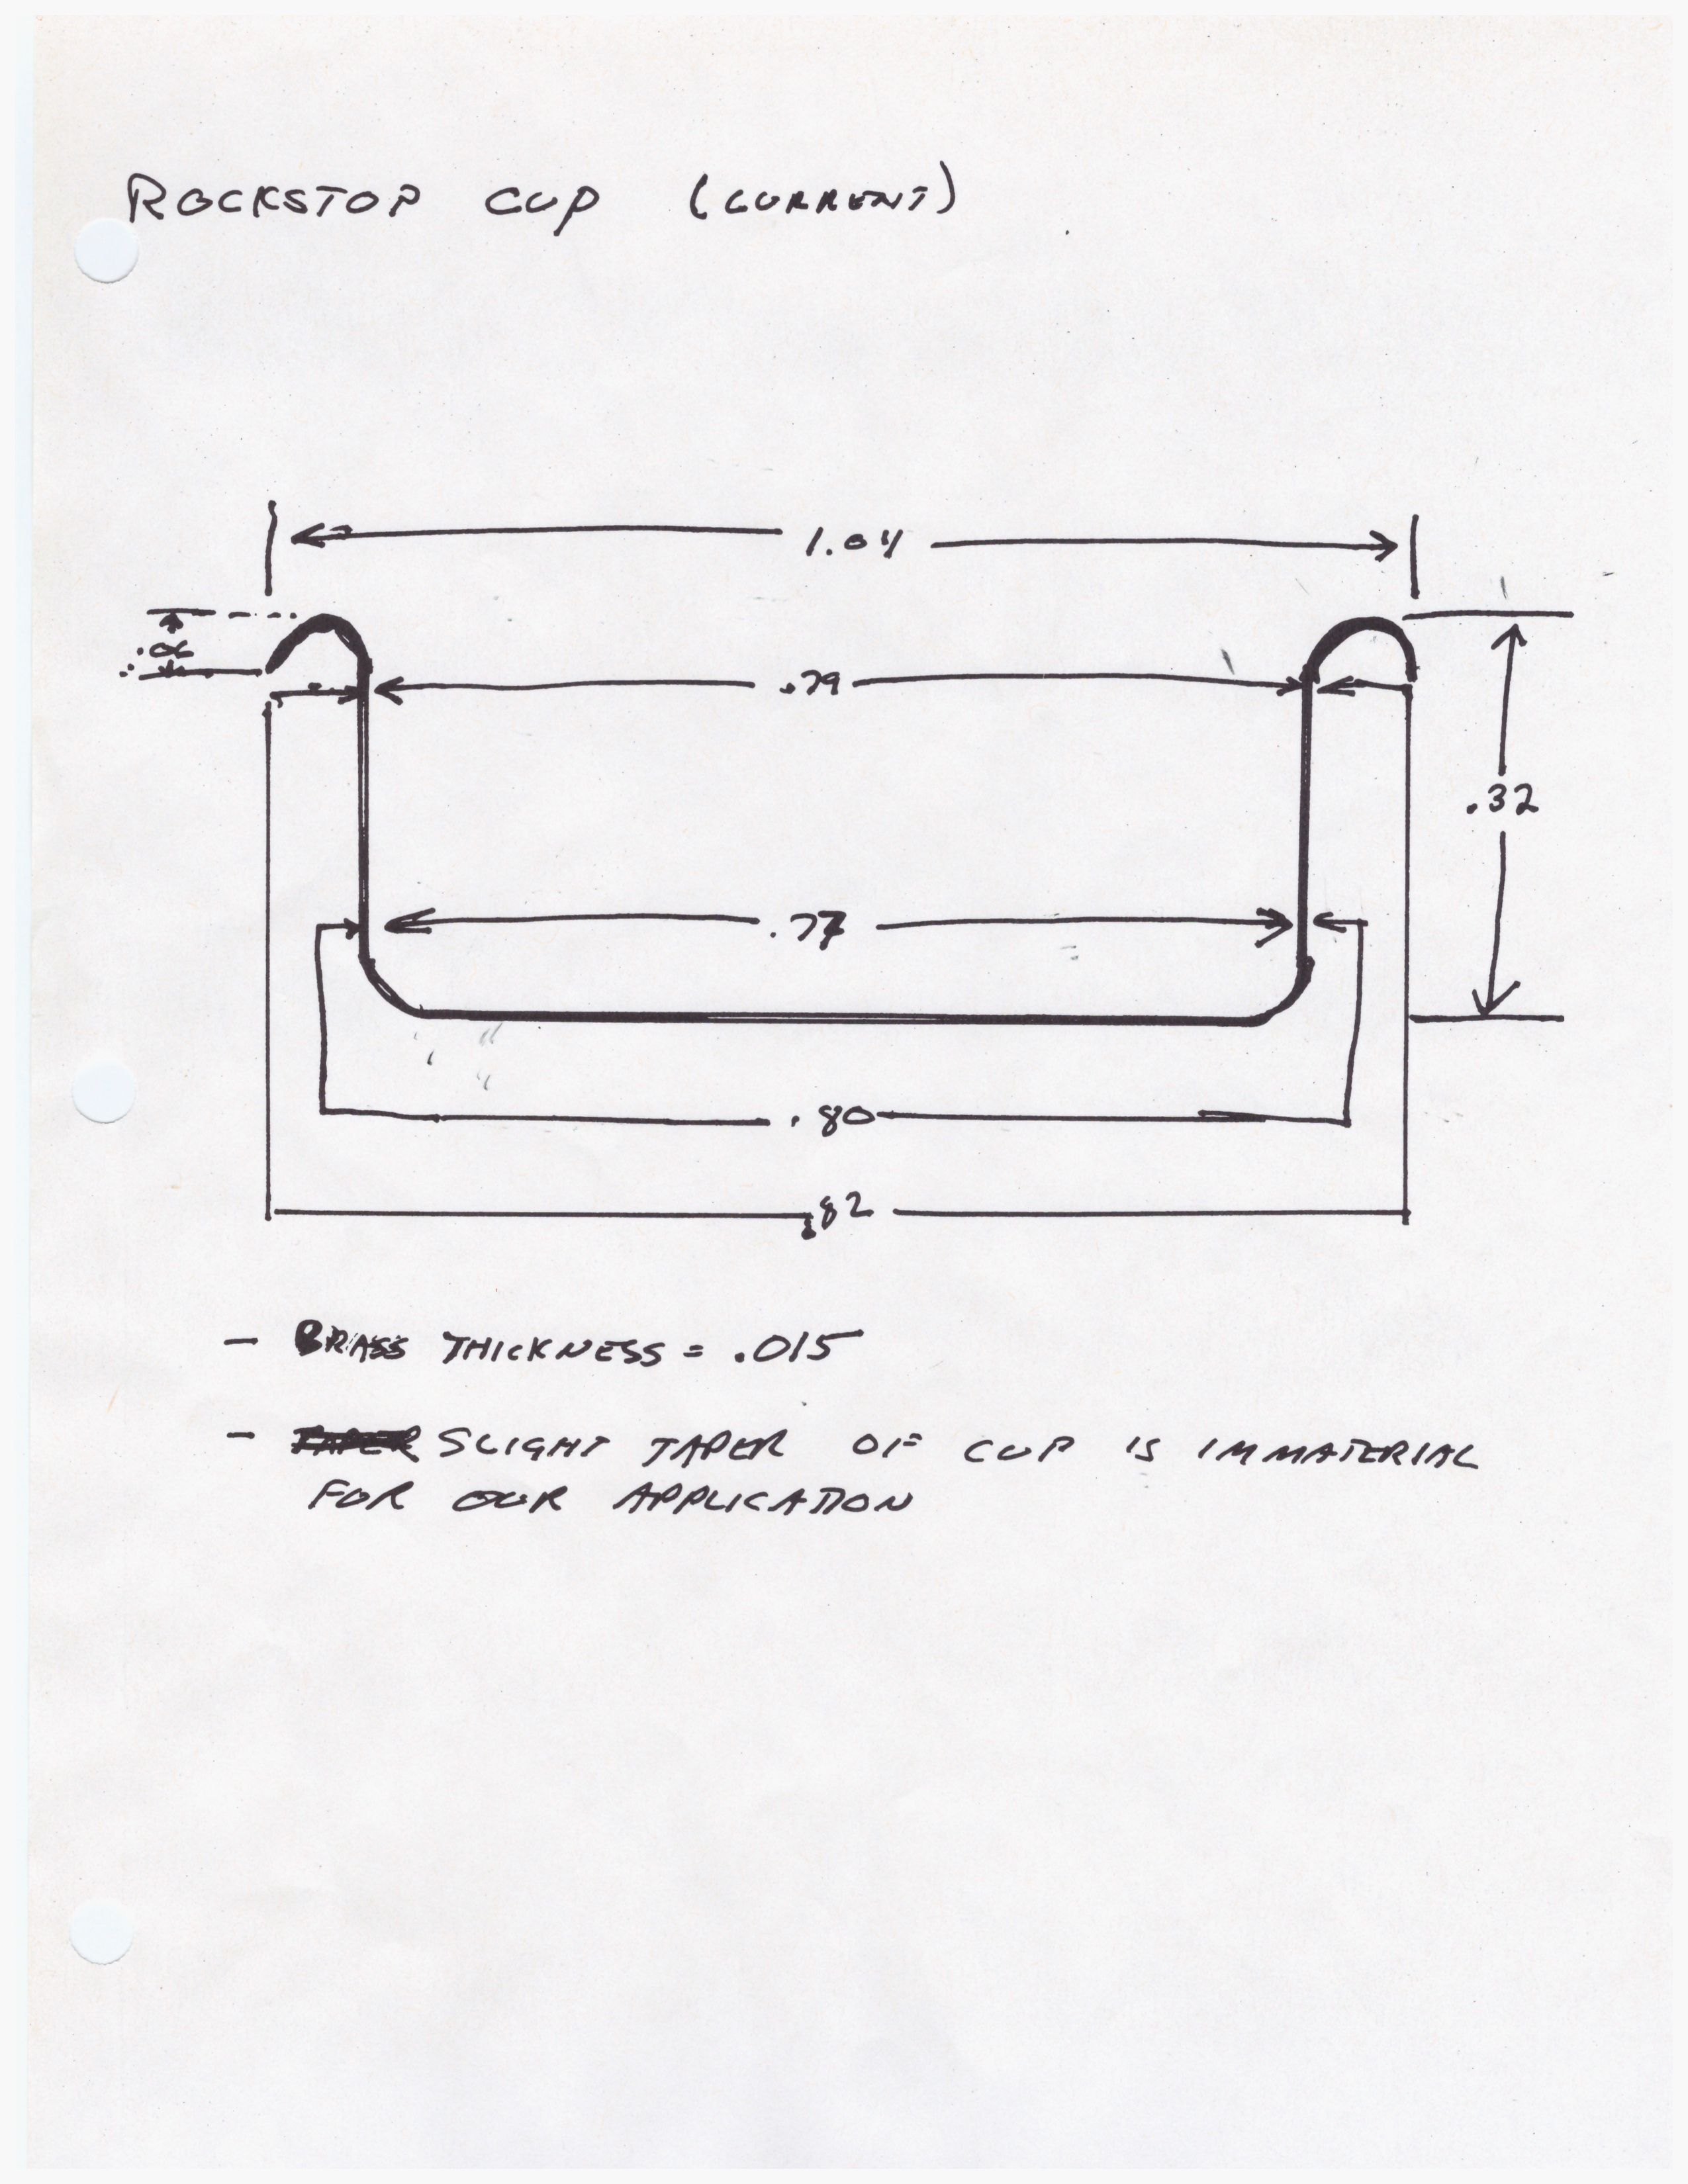 ROCKSTOP CUP (CURRENT)
1.04
.79
.32
.77
.80
.82
- BRASS THICKNESS = .015
- SLIGHT TAPER OF CUP IS IMMATERIAL
FOR OUR APPLICATION